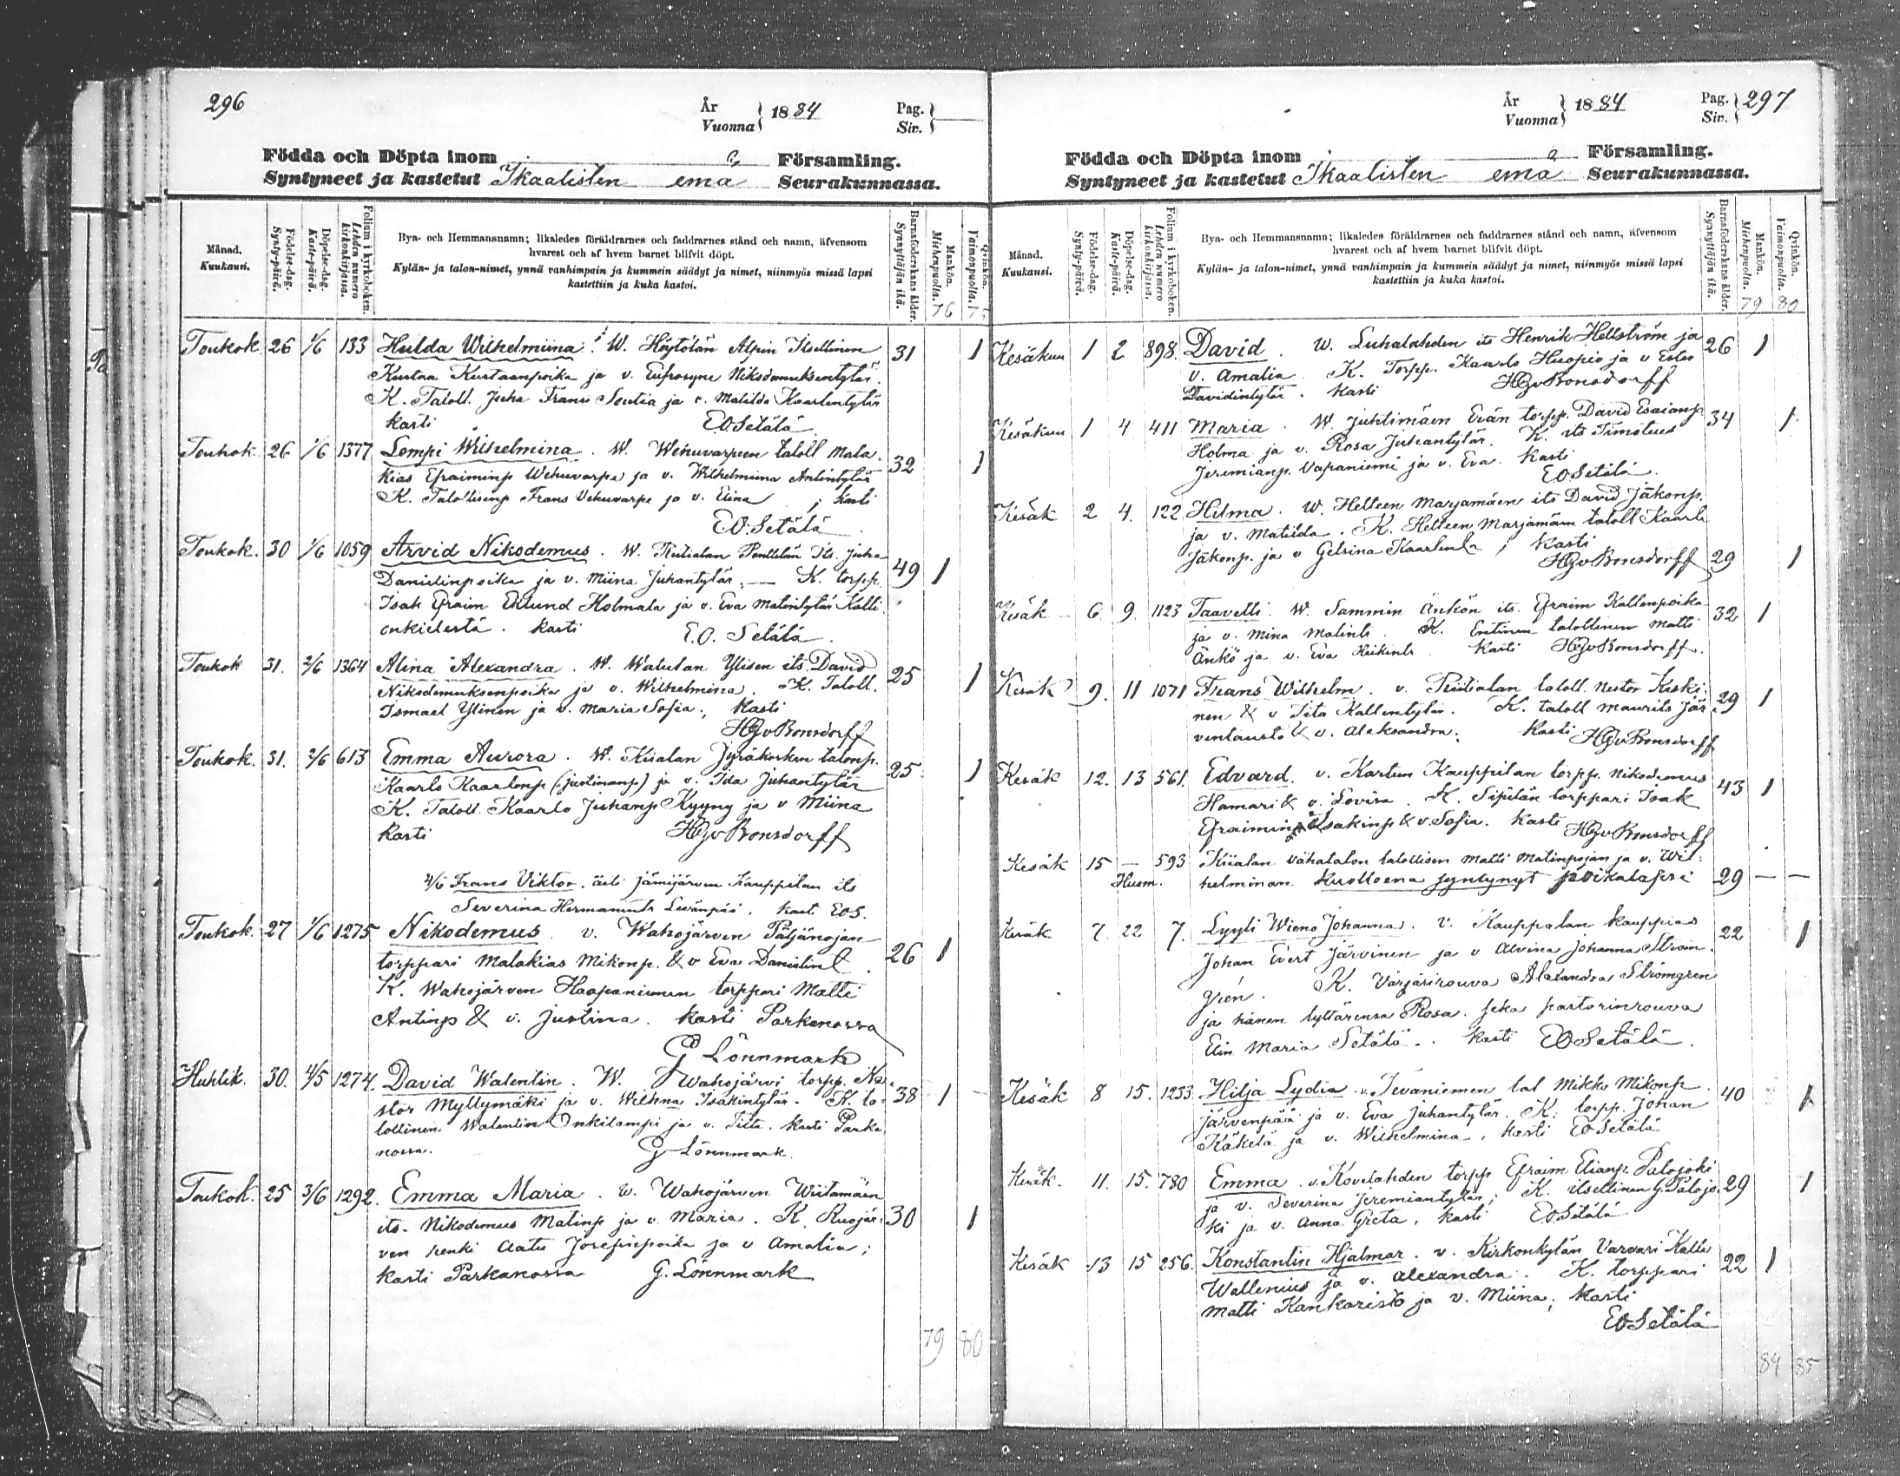 296
År
Vuonna
1884
Pag.
Siv.
Födda och Döpta inom a Församling.
Syntyneet ja kastetut Ikaalisten emä Seurakunnassa.
Månad.
Kuukausi.
Födelse-dag.
Synty-päivä.
Döpelse-dag.
Kaste-päivä.
Folium i kyrkoboken.
Lehden numero kirkonkirjassa.
Bya- och Hemmansnamn; likaledes föräldrarnes och faddrarnes stånd och namn, äfvensom
hvarest och af hvem barnet blifvit döpt.
Kylän- ja talon-nimet, ynnä vanhimpain ja kummein säädyt ja nimet, niinmyös missä lapsi
kastettiin ja kuka kastoi.
Barnaföderskans ålder.
Synnyttäjän ikä.
Mankön.
Miehenpuolta.
76
Qvinkön.
Vaimonpuolta.
75
Toukok 26 1/6 133 Hulda Wilhelmiina. W. Höytölän Alpin Itsellinen 31 1
Kustaa Kustaanpoika ja v. Eufrosyne Nikodemuksentytär.
K. Taloll. Juha Frans Soutia ja v. Matilda Kaarlentytär
kasti EOSetälä
Toukok 26 1/6 1377 Lempi Wilhelmina. W. Wehuvarpeen taloll Mala- 32 1
kias Efraiminp Wehuvarpe ja v. Wilhelmiina Antintytär
K. Talollisenp Frans Vehuvarpe ja v. Eiina ; kasti
EO.Setälä
Toukok. 30 1/6 1059 Arvid Nikodemus. W. Penttilän Its. Juha 49 1
Danielinpoika ja v. Miina Juhantytär. — K. torpp.
Isak Efraim Eklund Holmala ja v. Eva Matintytär Kallionkielestä. kasti E.O. Setälä.
Toukok 31. 2/6 1364 Alina Alexandra. W. Watulan Ylisen its. David 25 1
Nikodemuksenpoika ja v. Wilhelmina. K. Taloll.
Ismael Ylinen ja v. Maria Sofia; kasti
HGvBonsdorff
Toukok. 31. 2/6 613 Emma Aurora. W. Kiialan Jyräkosken talonp. 25 1
Kaarlo Kaarlonp (Justinanp) ja v. Ida Juhantytär
K. Taloll. Kaarlo Juhanp Kyyny ja v Miina
Kasti HGvBonsdorff
4/6 Frans Viktor. äiti Jämijärven Kauppilan its
Severina Hermannintr Levänpää. kast. EOS.
Toukok. 27 1/6 1275 Nikodemus v. Wahojärven Patjänojan 26 1
torppari Malakias Mikonp. & v Eva Danielint
K. Wahojärven Haapaniemen torppari Matti
Antinp & v. Justina. kasti Parkanossa
G Lönnmark
Huhtik. 30. 4/5 1274. David Walentin. W. Wahojärvi torpp. Nes- 38 1
tor Myllymäki ja v. Wilhna Isakintytär. K. ta-
lollinen Walentin Onkilampi ja v. Tilta. kasti Parka-
nossa. G Lönnmark.
Toukok. 25 3/6 1292. Emma Maria. w. Wahojärven Wiitamäen 30 1
its. Nikodemus Matinp ja v. Maria. K. Ruojär-
ven renki Aatu Josepinpoika ja v Amalia;
kasti Parkanossa G. Lönnmark
79 80
År
Vuonna
1884
Pag.
Siv.
297
Födda och Döpta inom a Församling.
Syntyneet ja kastetut Ikaalisten emä Seurakunnassa.
Månad.
Kuukausi.
Födelse-dag.
Synty-päivä.
Döpelse-dag.
Kaste-päivä.
Folium i kyrkoboken.
Lehden numero kirkonkirjassa.
Bya- och Hemmansnamn; likaledes föräldrarnes och faddrarnes stånd och namn, äfvensom
hvarest och af hvem barnet blifvit döpt.
Kylän- ja talon-nimet, ynnä vanhimpain ja kummein säädyt ja nimet, niinmyös missä lapsi
kastettiin ja kuka kastoi.
Barnaföderskans ålder.
Synnyttäjän ikä.
Mankön.
Miehenpuolta.
79
Qvinkön.
Vaimonpuolta.
80
Kesäkuu 1 2 898. David. W. Luhalahden its Henrik Hellström ja 26 1
v. Amalia. K. Torpp. Kaarlo Huopio ja v Ester
Davidintytär. Kasti HGvBonsdorff
Kesäkuu 1 4 411 Maria. W. Juhtimäen Erän torpp. David Esaianp 34 1.
Holma ja v. Rosa Juhantytär. K. its Timoteus
Jeremianp. Vapaniemi ja v. Eva. Kasti
EOSetälä.
Kesäk 2 4. 122 Hilma. W. Helteen Marjamäen its David Jakonp.
ja v. Matilda. K. Helteen Marjamäen taloll Kaarle
Jakonp. ja v Gelsina Kaarlentr; Kasti
HGvBonsdorff 29 1
Kesäk 6 9. 1123 Taavetti. W. Sammin Änkön its. Efraim Kallenpoika 32 1
ja v. Mina Matintr. K. Entinen talollinen Matti
Änkö ja v. Eva Heikintr. Kasti HGvBonsdorff.
Kesäk 9. 11 1071 Frans Wilhelm. v. Riitialan taloll. Nestor Keski- 29 1
nen & v Tilta Kallentytär. K. taloll Maurits Jär-
ventausta & v. Aleksandra. Kasti HGvBonsdorff
Kesäk 12. 13 561. Edvard. v. Kartun Kauppilan torpp. Nikodemus 43 1
Hamari & v. Lovisa. K. Sipilän torppari Isak
Efraiminp Isakinp & v. Sofia. Kasti HGvBonsdorff
Kesäk 15 — 593 Kiialan Vähätalon talollisen Matti Matinpojan ja v. Wil-
Huom. helminan kuolleena syntynyt poikalapsi 29 — —
Kesäk 7 22 7. Lyyli Wieno Johanna. v. Kauppalan kauppias 22 1
Johan Evert Järvinen ja v Alvina Johanna Ström-
grén. K. Värjärirouva Alexandra Strömgren
ja hänen tyttärensä Rosa. sekä pastorinrouva
Elin Maria Setälä. kasti EOSetälä.
Kesäk 8 15. 1233 Hilja Lydia. v. Jevaniemen tal Mikko Mikonp. 40 1
Järvenpää ja v. Eva Juhantytär. K: torpp. Johan
Käkelä ja v. Wilhelmina. kasti EOSetälä
Kesäk. 11. 15. 780 Emma. v. Kovelahden torpp Efraim Elianp. Palojoki 29 1
ja v. Severina Jeremiantytär; K. itsellinen G Palojo-
ki ja v. Anna Greta. Kasti EOSetälä
Kesäk 13 15 256. Konstantin Hjalmar. v. Kirkonkylän Varvari Kalle 22 1
Wallenius ja v. Alexandra. K. torppari
Matti Kankaristo ja v. Miina; Kasti
EOSetälä
84 85